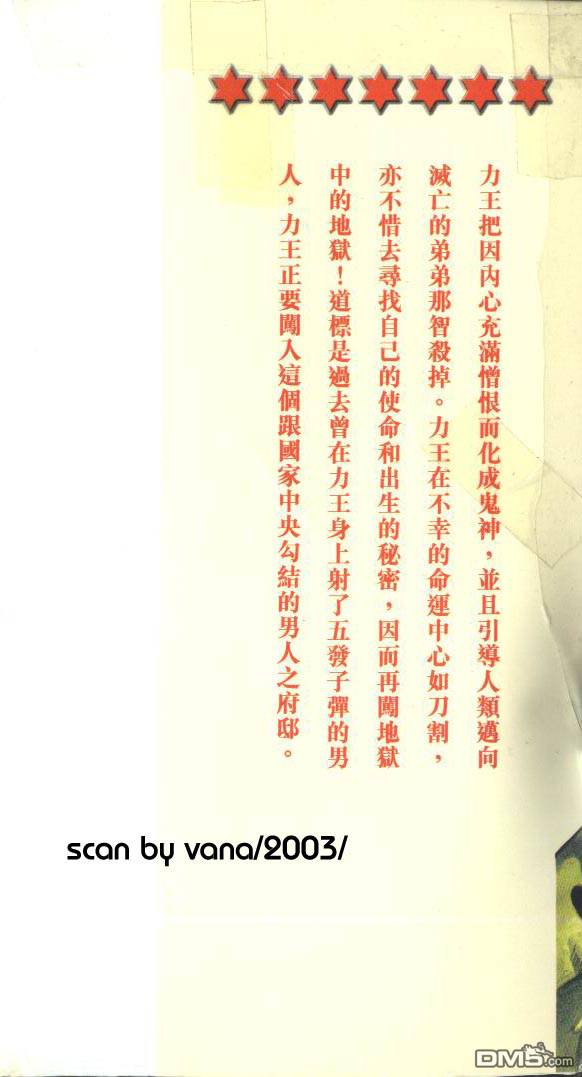 力王把因內心充滿憎恨而化成鬼神，並且引導人類邁向
滅亡的弟弟那智殺掉。力王在不幸的命運中心如刀割，
亦不惜去尋找自己的使命和出生的秘密，因而再闖地獄
中的地獄！道標是過去曾在力王身上射了五發子彈的男
人，力王正要闖入這個跟國家中央勾結的男人之府邸。
scan by vana/2003/
DM5.com